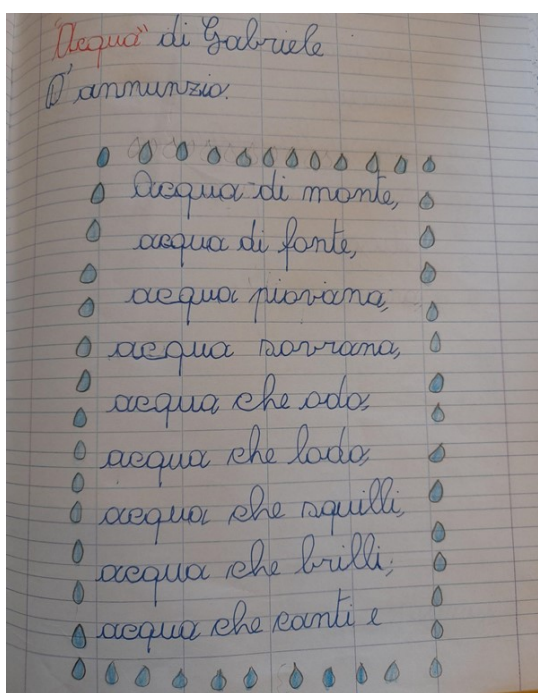 "Acqua" di Gabriele
D'annunzio.
Acqua di monte,
acqua di fonte,
acqua piovana,
acqua sovrana,
acqua che odo,
acqua che lodo,
acqua che squilli,
acqua che brilli,
acqua che canti e